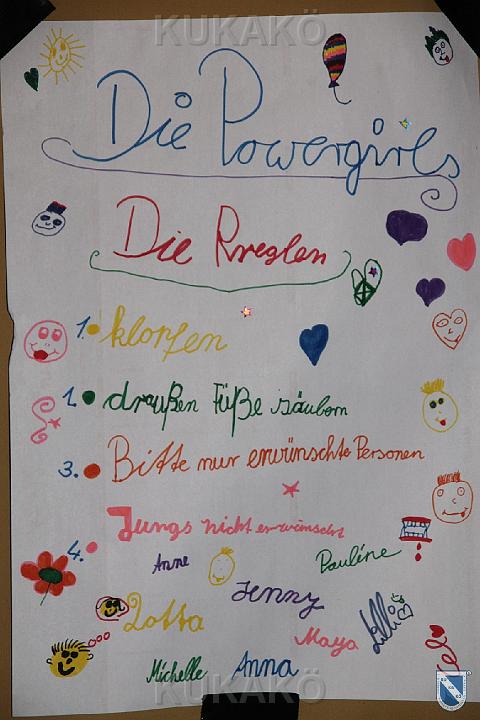 KUKAKÖ
Die Powergirls
Die Rreglen
1. klopfen
1. draußen Füße säubern
3. Bitte nur erwünschte Personen
4. Jungs nicht erwünscht
Anne
Pauline
Jenny
Lotta
Lilli
Maya
Michelle
Anna
KUKAKÖ